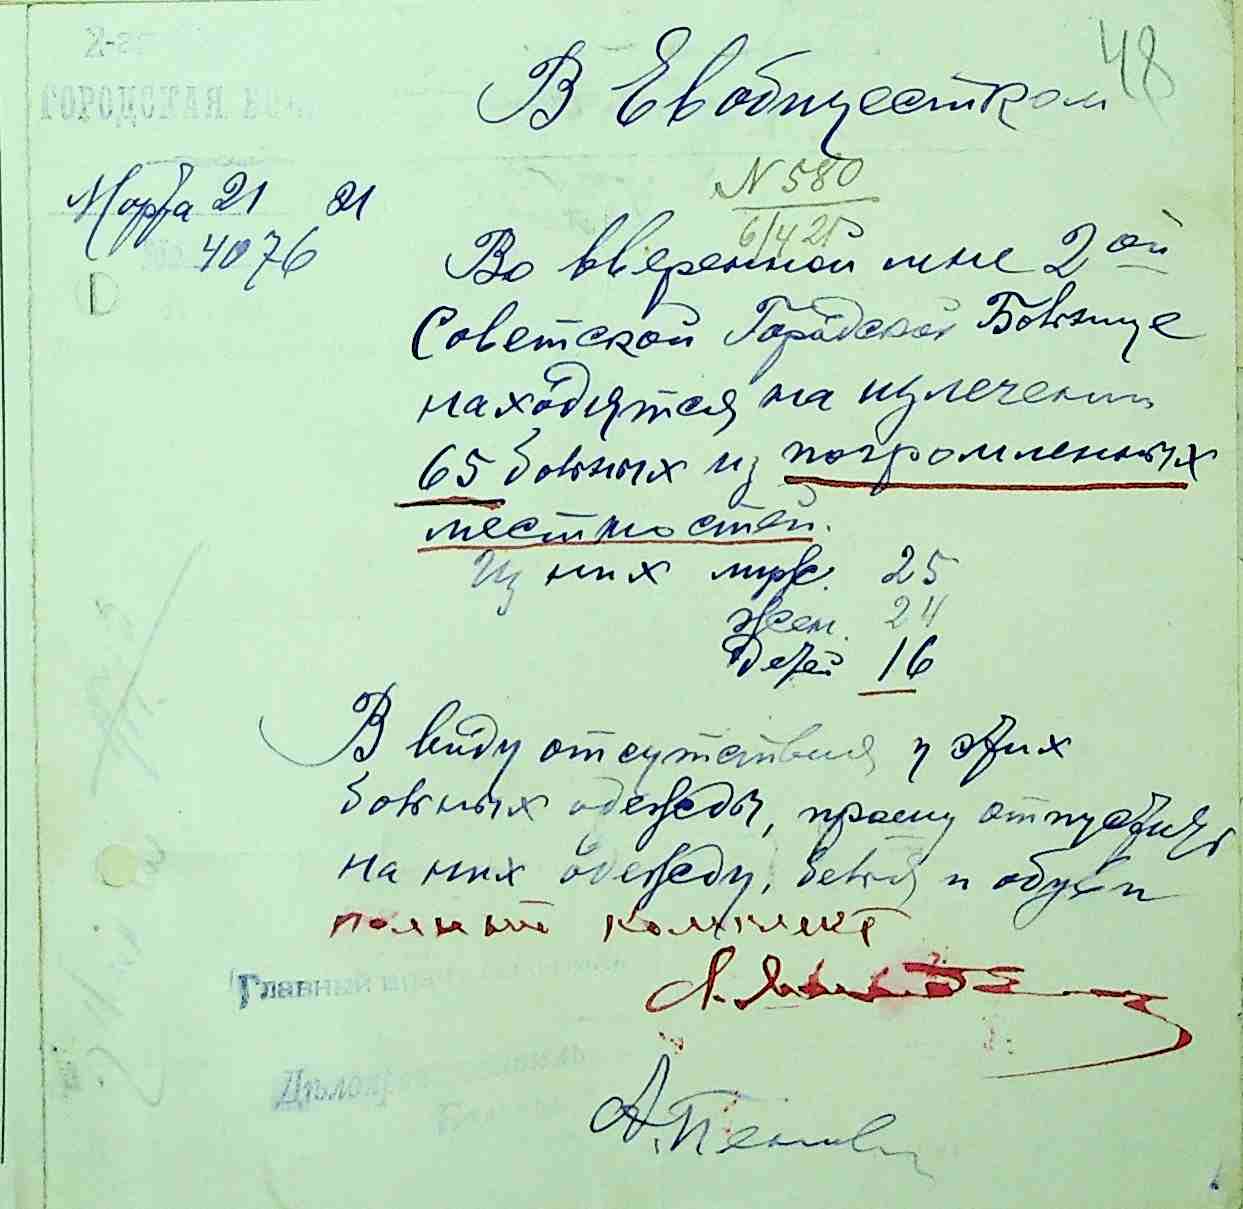 48
2-
ГОРОДСКАЯ
В Евобщестком
Марта 21 21
4076
N 580
6/4 21
Во вверенной мне 2ой
Советской Городской Больнице
находятся на излечении
65 больных из погромленных
местностей.
Из них муж. 25
жен. 24
детей 16
В виду отсутствия у этих
больных одежды, прошу отпустить
на них одежду, белья и обуви
полный комплект
Главный врач